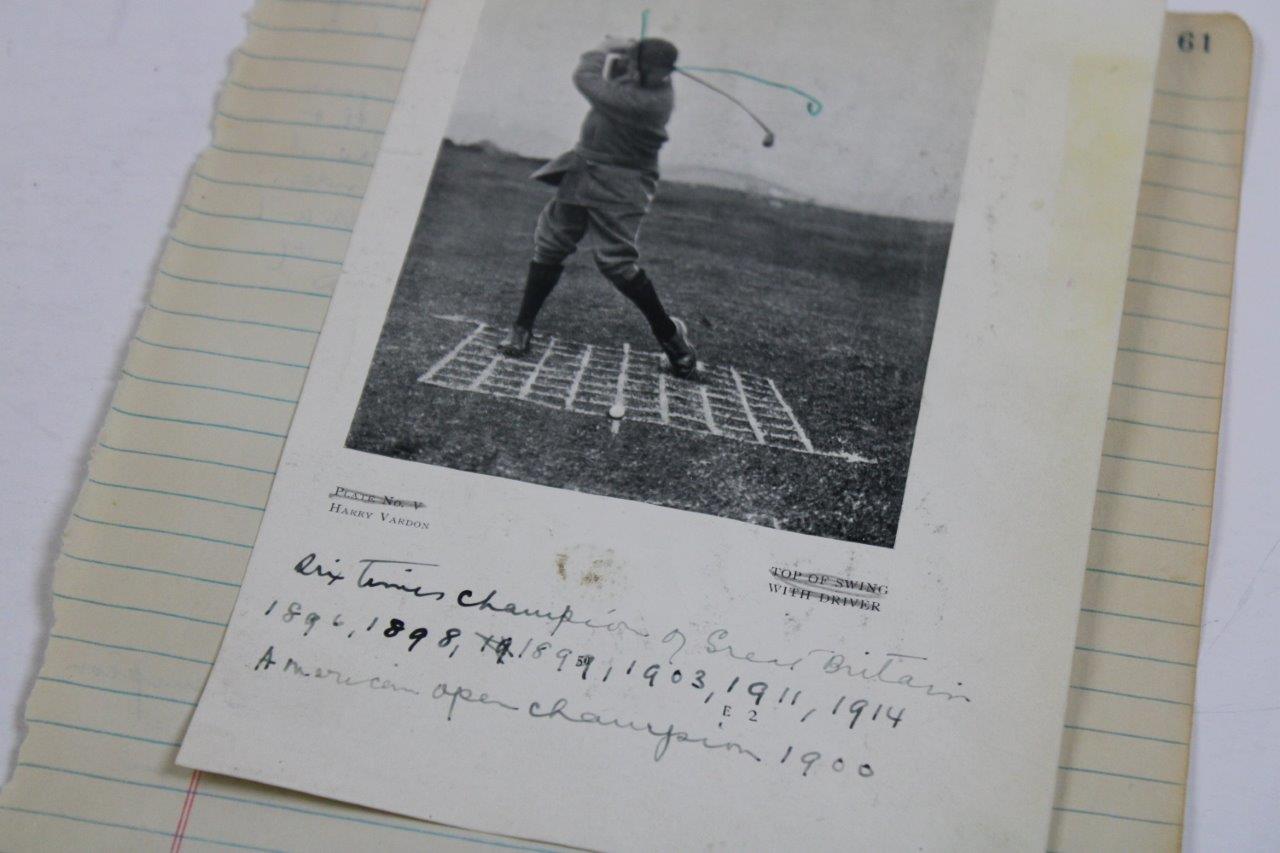 61
PLATE NO. V
HARRY VARDON
TOP OF SWING
WITH DRIVER
Six times champion of Great Britain
1896, 1898, 19 1899, 1903, 1911, 1914
59
E 2
American open champion 1900